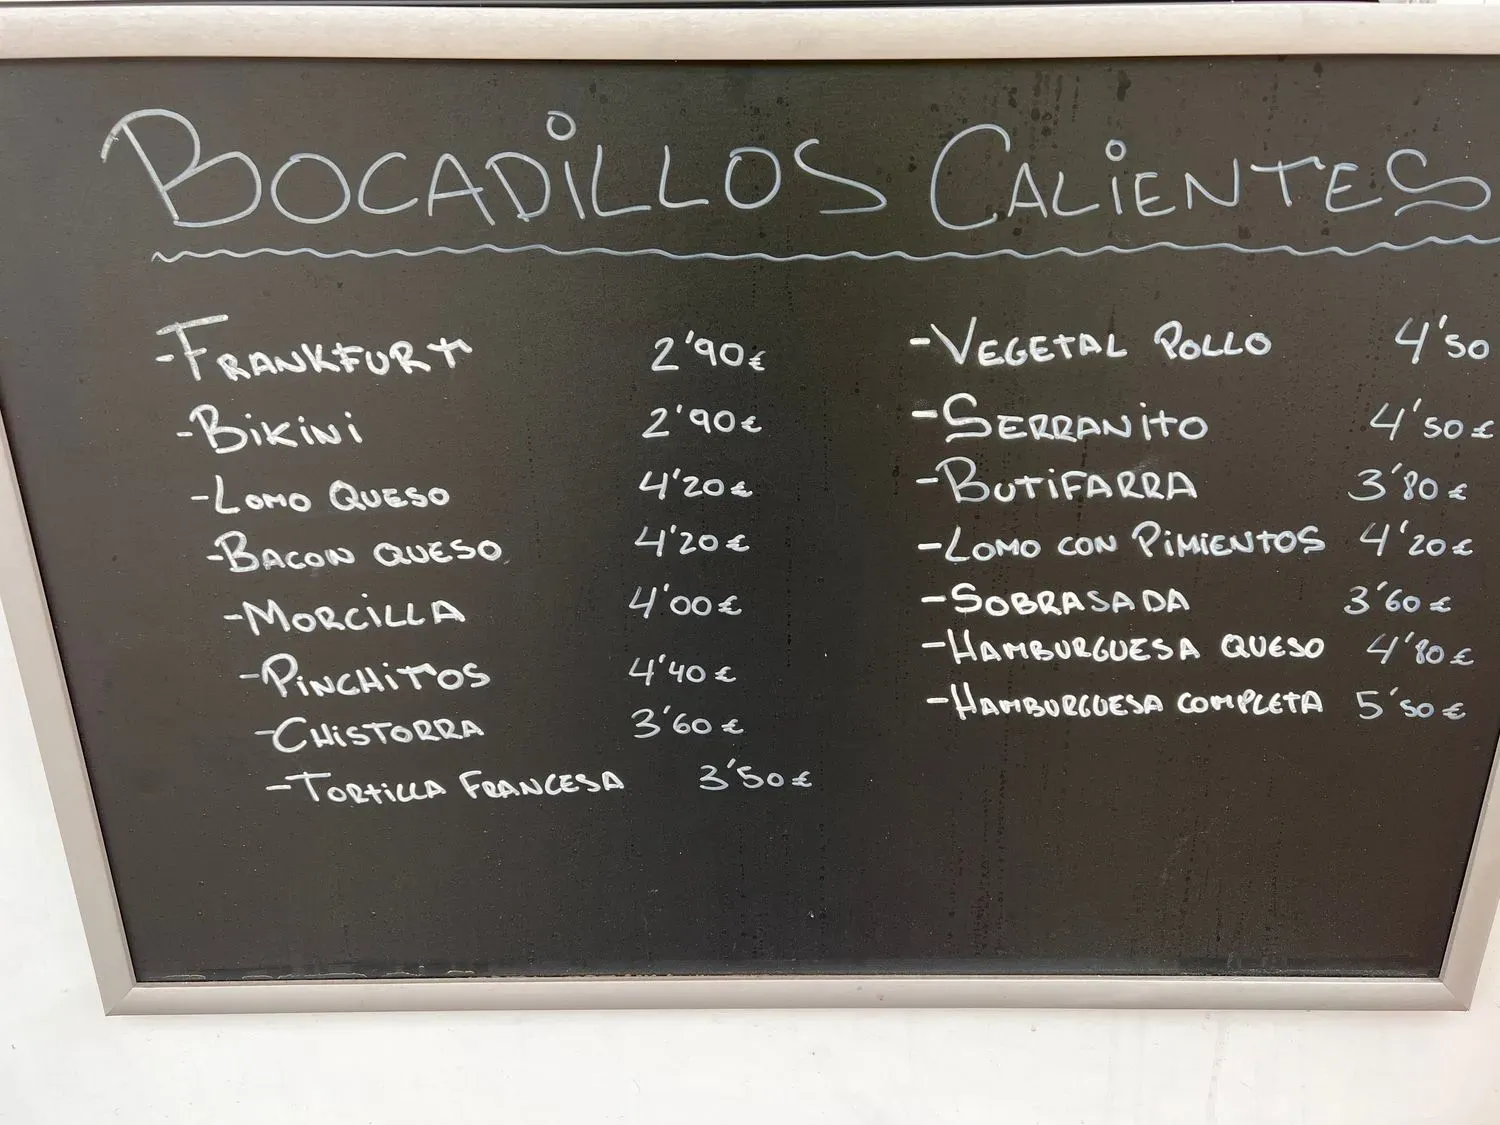 BOCADILLOS CALIENTES
-FRANKFURT 2'90€
-BIKINI 2'90€
-LOMO QUESO 4'20€
-BACON QUESO 4'20€
-MORCILLA 4'00€
-PINCHITOS 4'40€
-CHISTORRA 3'60€
-TORTILLA FRANCESA 3'50€
-VEGETAL POLLO 4'50
-SERRANITO 4'50€
-BUTIFARRA 3'80€
-LOMO CON PIMIENTOS 4'20€
-SOBRASADA 3'60€
-HAMBURGUESA QUESO 4'80€
-HAMBURGUESA COMPLETA 5'50€